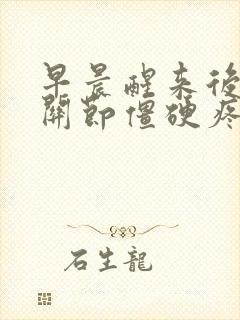 早晨醒来後
關節僵硬疼
石生龍